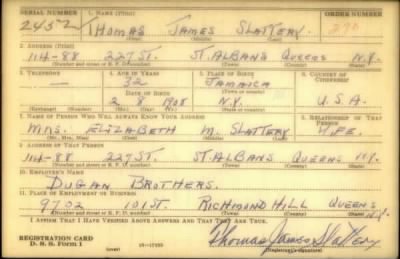 SERIAL NUMBER 1. NAME (Print) ORDER NUMBER
2452 THOMAS JAMES SLATTERY
(First) (Middle) (Last)
2. ADDRESS (Print)
114-88 227 ST. ST. ALBANS QUEENS N.Y.
(Number and street or R. F. D. number) (Town) (County) (State)
3. TELEPHONE 4. AGE IN YEARS 5. PLACE OF BIRTH 6. COUNTRY OF CITIZENSHIP
— 32 JAMAICA
DATE OF BIRTH (Town or county)
2 8 1908 N.Y. U.S.A.
(Exchange) (Number) (Mo.) (Day) (Yr.) (State or country)
7. NAME OF PERSON WHO WILL ALWAYS KNOW YOUR ADDRESS 8. RELATIONSHIP OF THAT PERSON
MRS. ELIZABETH M. SLATTERY WIFE.
(Mr., Mrs., Miss) (First) (Middle) (Last)
9. ADDRESS OF THAT PERSON
114-88 227 ST. ST. ALBANS QUEENS N.Y.
(Number and street or R. F. D. number) (Town) (County) (State)
10. EMPLOYER'S NAME
DUGAN BROTHERS.
11. PLACE OF EMPLOYMENT OR BUSINESS
97-02 101 ST. RICHMOND HILL QUEENS N.Y.
(Number and street or R. F. D. number) (Town) (County) (State)
I AFFIRM THAT I HAVE VERIFIED ABOVE ANSWERS AND THAT THEY ARE TRUE.
REGISTRATION CARD
D. S. S. Form 1 (over) 16—17105 Thomas James Slattery
(Registrant's signature)